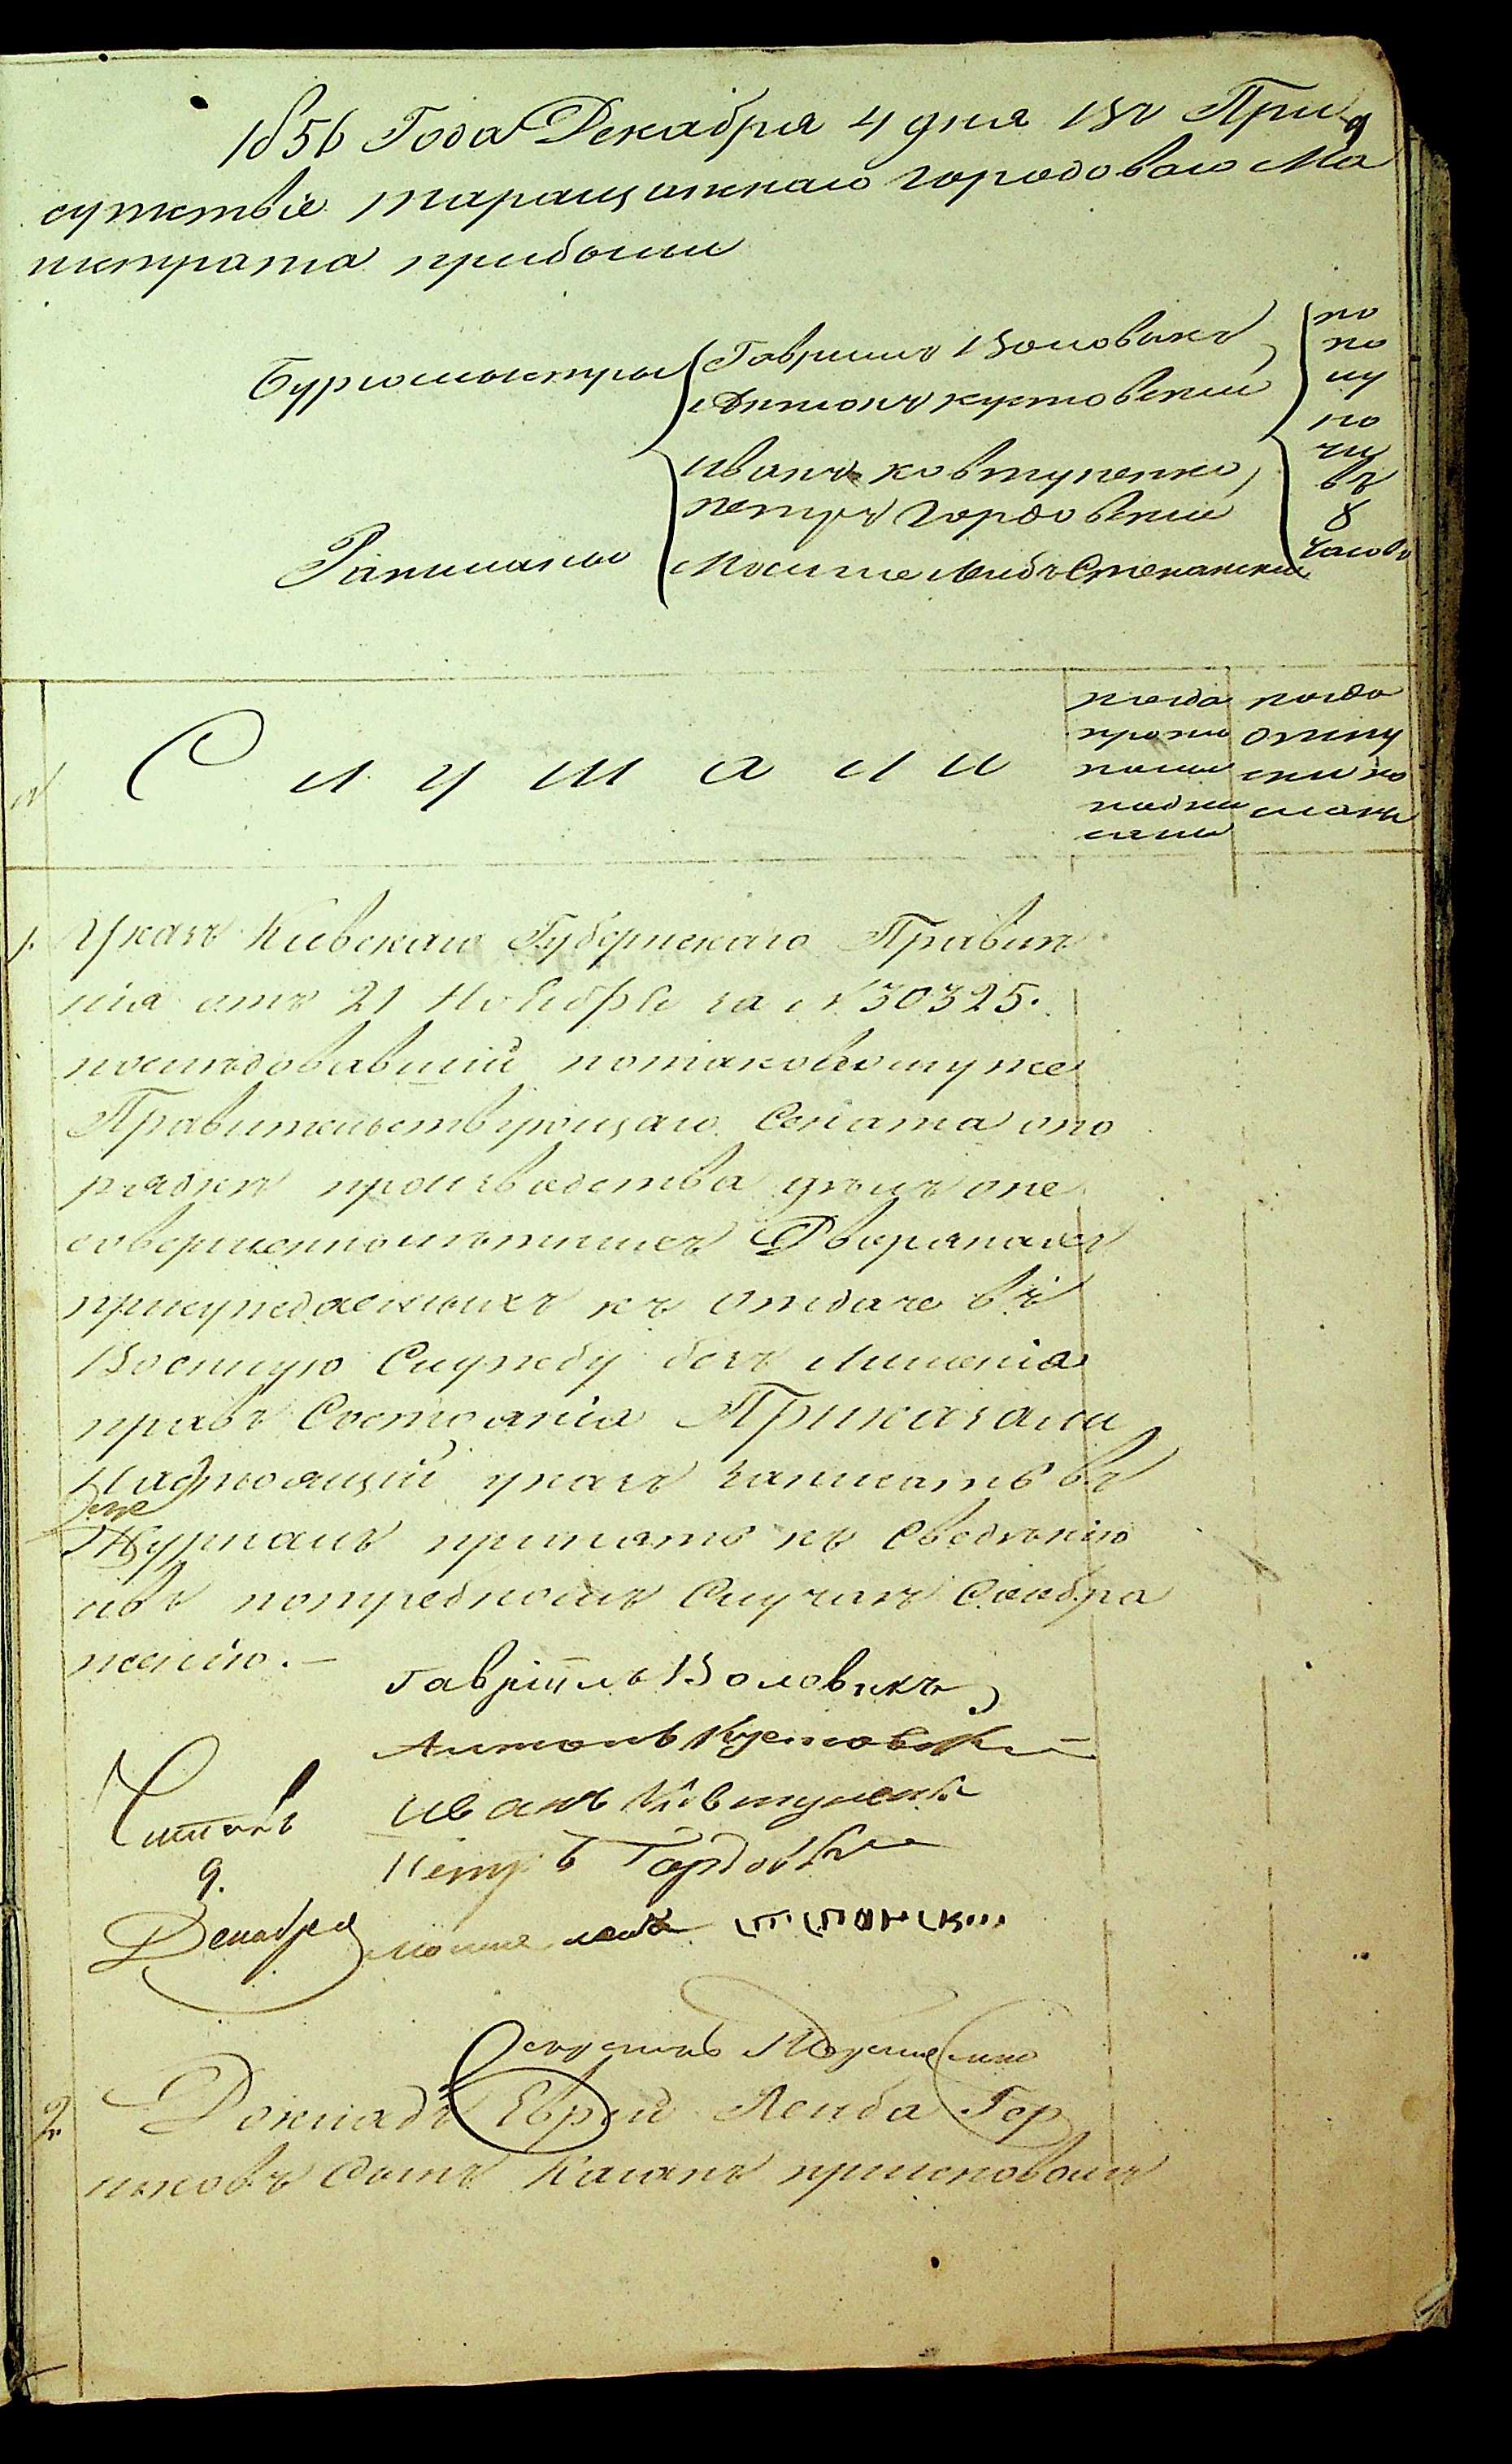 1856 Года Декабря 4 дня Въ При
сутствіе таращанскаго городоваго Ма
гистрата прибыли
Бургомистры
Гаврiилъ Воловикъ
Антонъ кутковскій
Ратманы
иванъ ковтуненко
петръ гордовскій
Мошке Лейбъ Степанскій
по
по
лу
но
чи
въ
8
часовъ
№
Слушали
когда
прото
колы
подпи
саны
когда
отпу
ски по
сланы
1. Указъ Кіевскаго Губернскаго Правле
нія отъ 21 Ноября за № 30325.
последовавшій потаковомуже
Правительствующаго Сената опо
рядке производства делъ оне
совершеннолетнихъ Дворянахъ
присуждаемыхъ къ отдаче въ
Военную Службу безъ Лишенія
правъ Состоянія Приказали
Настоящій указъ записать въ
Журналъ принять къ Сведенію
ивъ потребномъ Случае Соображе
женію. —
Гавріилъ Воловикъ
Антонъ
Иванъ Ковтуненко
Петръ Гордовскій
мошке леибъ
Читалъ
9.
Декабря
2. Докладъ Еврей Леиба Гер
шковъ Сынъ Каганъ